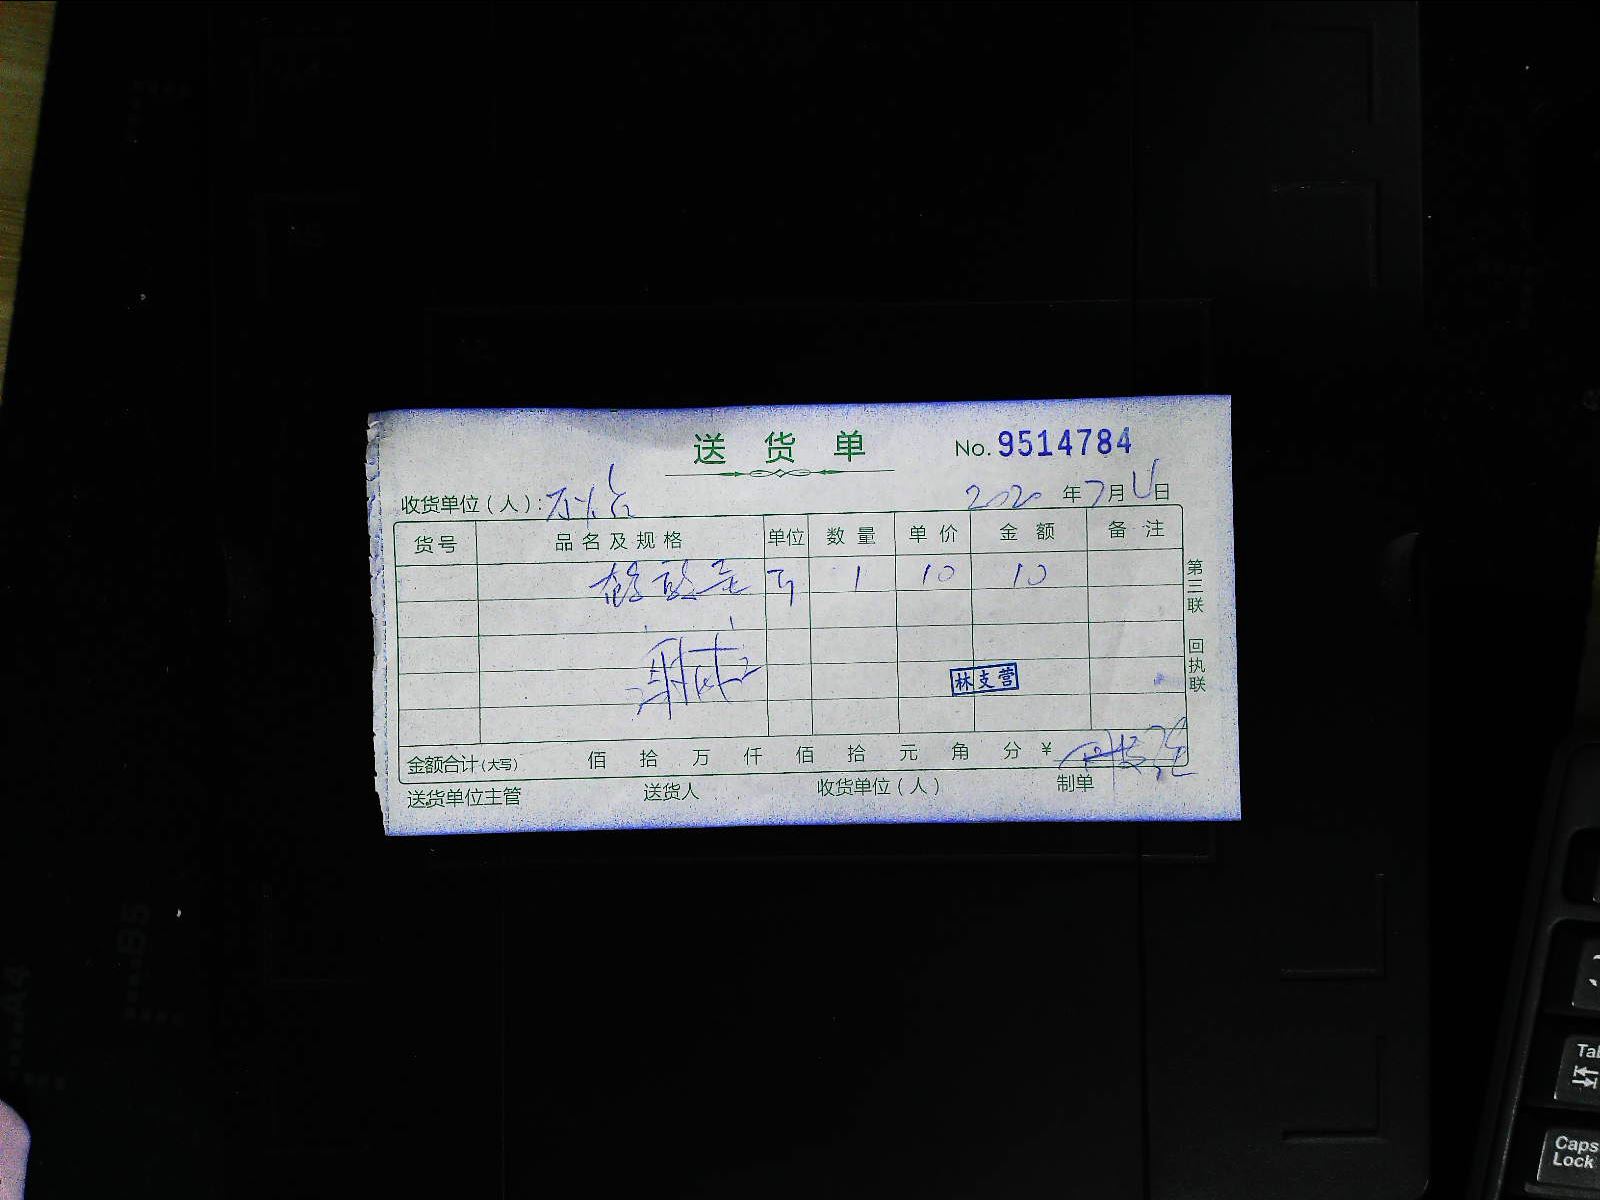 送货单 No. 9514784
收货单位（人）： 2020年7月 日
货号 品名及规格 单位 数量 单价 金额 备注
1 10 10
林支营
金额合计（大写） 佰 拾 万 仟 佰 拾 元 角 分 ¥
送货单位主管 送货人 收货单位（人） 制单
第三联 回执联
B5
A4
Tab
Caps Lock